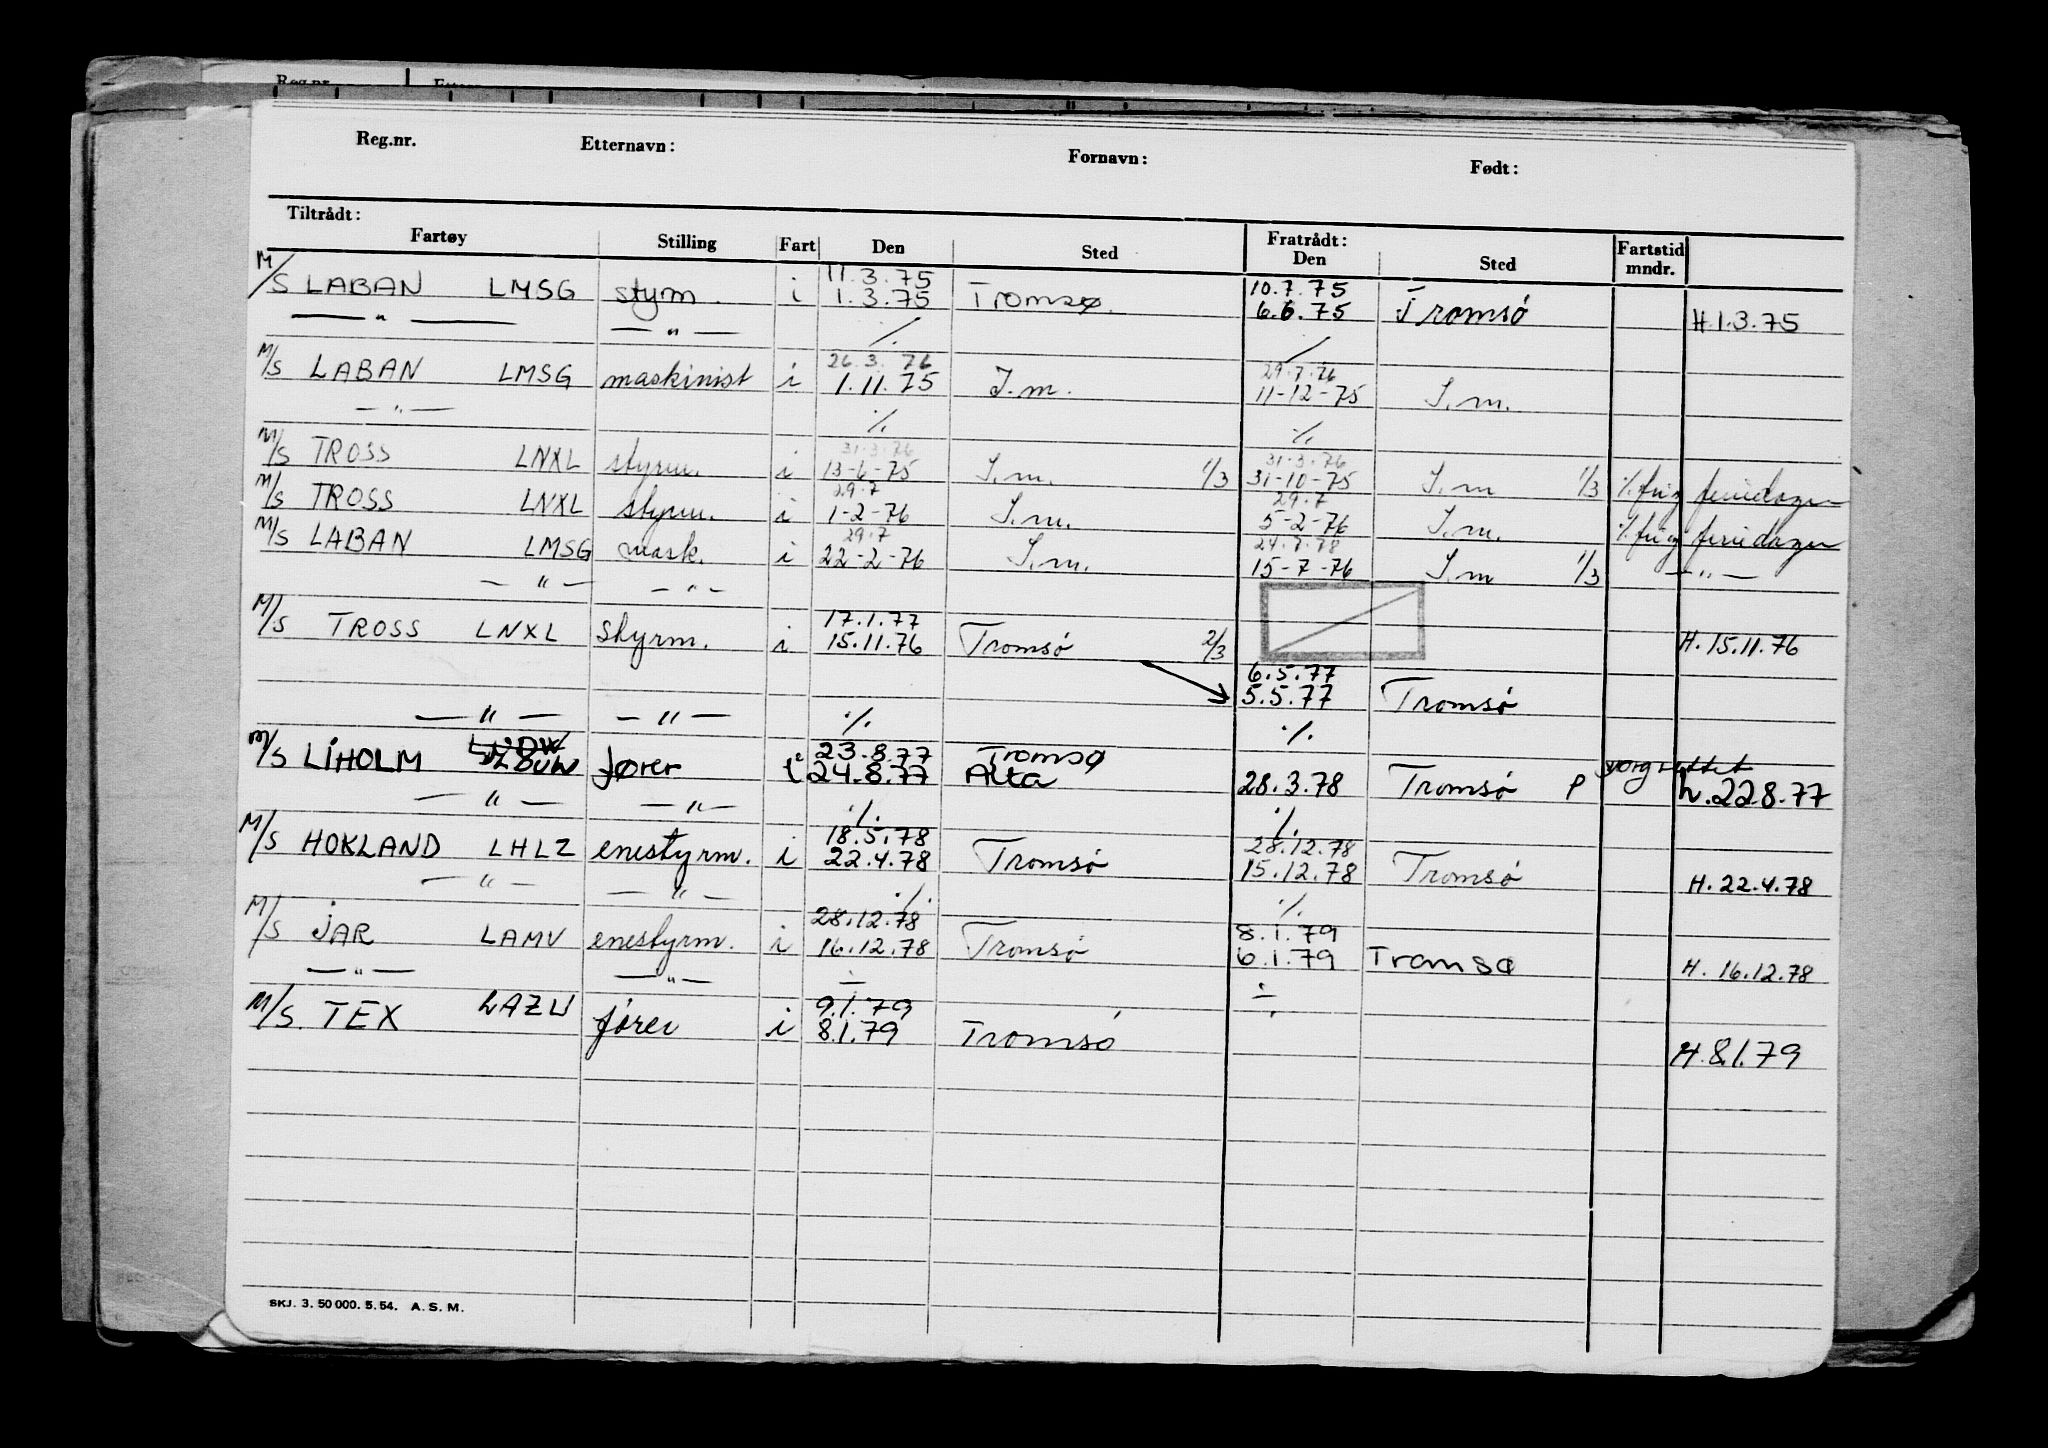 Reg.nr. Etternavn: Fornavn: Født:
Tiltrådt: Fratrådt:
Fartøy Stilling Fart Den Sted Den Sted Fartstid mndr.
11.3.75 10.7.75
M/S LABAN LMSG stym. i 1.3.75 Tromsø. 6.6.75 Tromsø H.1.3.75
— " — — " — ./. ./.
26.3.76 29.7.76
M/S LABAN LMSG maskinist i 1.11.75 I.m. 11-12-75 I.m.
— " — ./. ./.
31.3.76 31.3.76
M/S TROSS LNXL styrm. i 13-6-75 I.m. 1/3 31-10-75 I.m 1/3 %fri og feriedager
29.7 29.7
M/S TROSS LNXL styrm. i 1-2-76 I.m. 5-2-76 I.m. %fri og feriedager
29.7 24.7.78
M/S LABAN LMSG mask. i 22-2-76 I.m. 15-7-76 I.m 1/3 — " —
— " — — " —
17.1.77
M/S TROSS LNXL styrm. i 15.11.76 Tromsø 2/3 H. 15.11.76
6.5.77
5.5.77 Tromsø
— " — — " — ./. ./.
23.8.77 Tromsø
M/S LIHOLM fører i 24.8.77 Alta 28.3.78 Tromsø P h.22.8.77
— " — — " — ./. ./.
18.5.78 28.12.78
M/S HOKLAND LHLZ enestyrm. i 22.4.78 Tromsø 15.12.78 Tromsø H. 22.4.78
— " — — " — ./. ./.
28.12.78 8.1.79
M/S JAR LAMV enestyrm. i 16.12.78 Tromsø 6.1.79 Tromsø H. 16.12.78
— " — — " — ÷ ÷
9.1.79
M/S. TEX LAZU fører i 8.1.79 Tromsø H.8.1.79
SKJ. 3. 50 000. 5. 54. A. S. M.